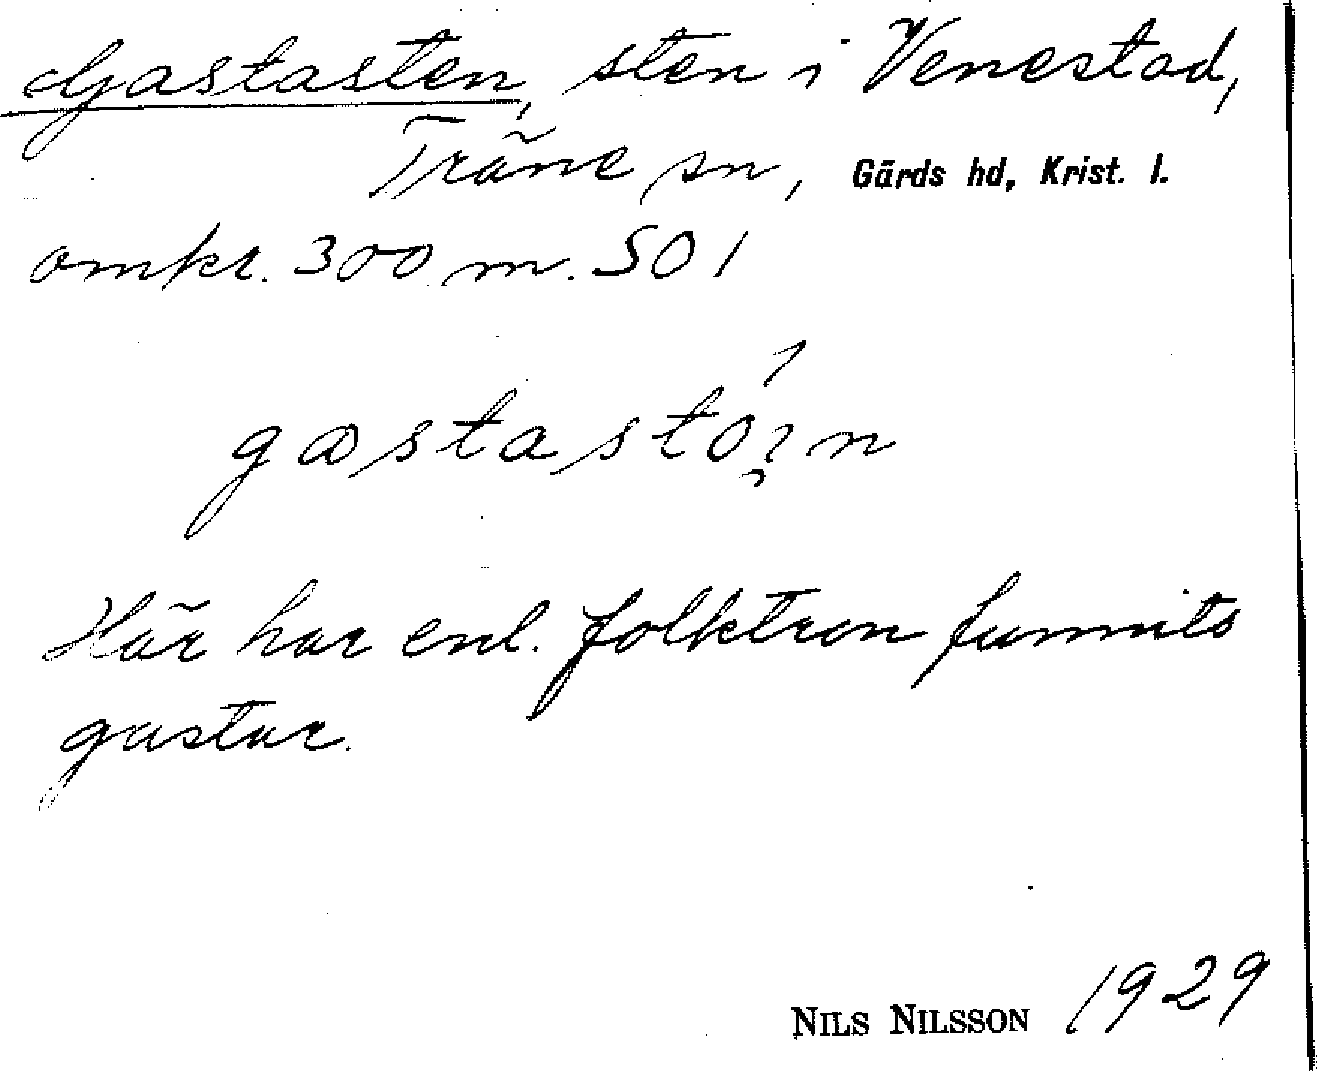 Gastasten, sten i Venestad,
Träne sn, Gärds hd, Krist. l.
omkr. 300 m. SO 1
Här har enl. folktron funnits
gastar.
NILS NILSSON 1929